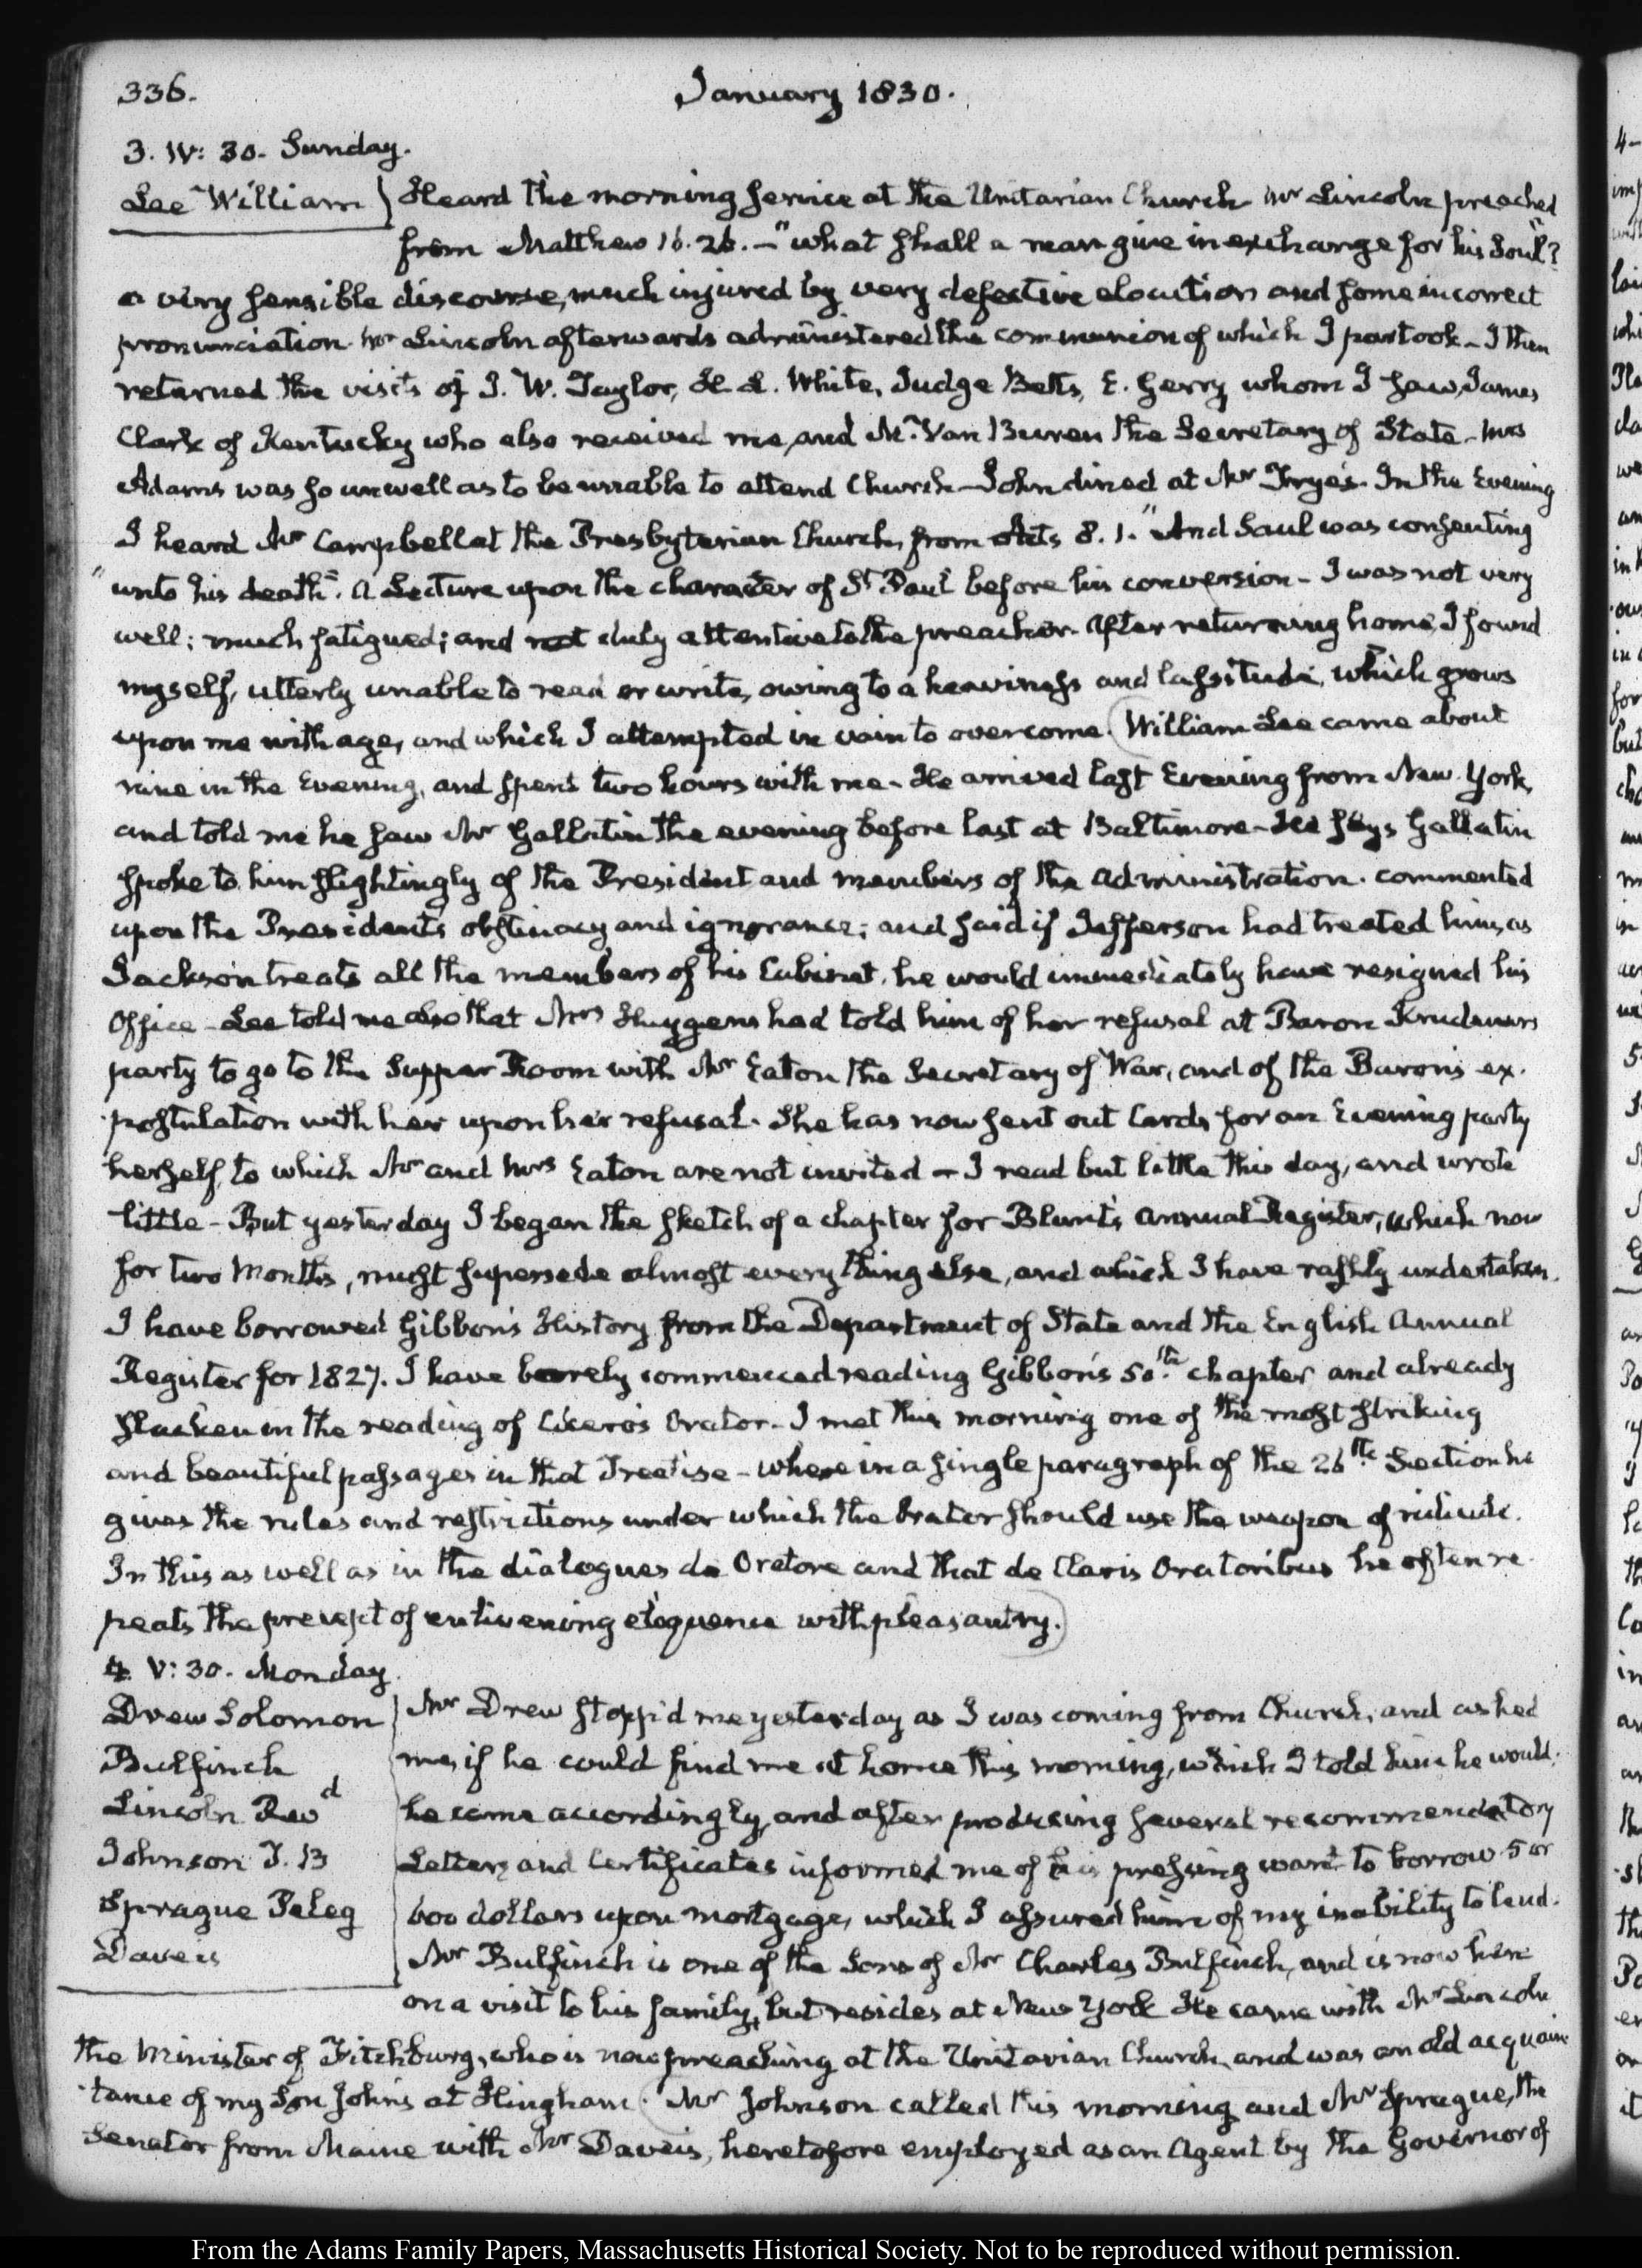 336.
January 1830.
3. IV: 30. Sunday.
Lee William
Heard the morning service at the Unitarian Church Mr Lincoln preached
from Matthew 16. 26. – "what shall a man give in exchange for his Soul"?
a very sensible discourse, much injured by very defective elocution and some incorrect
pronunciation Mr Lincoln afterwards administered the communion of which I partook – I then
returned the visits of J. W. Taylor, H. L. White, Judge Betts, E. Gerry whom I saw, James
Clark of Kentucky who also received me, and M. Van Buren the Secretary of State – Mrs
Adams was so unwell as to be unable to attend Church – John dined at Mr Frye's. In the Evening
I heard Mr Campbell at the Presbyterian Church, from Acts 8. 1. "And Saul was consenting
"unto his death". A Lecture upon the character of St Paul before his conversion – I was not very
well; much fatigued; and not duly attentive to the preacher. After returning home, I found
myself, utterly unable to read or write, owing to a heaviness and lassitude, which grows
upon me with age, and which I attempted in vain to overcome. (William Lee came about
nine in the Evening, and spent two hours with me – He arrived last Evening from New York,
and told me he saw Mr Gallatin the evening before last at Baltimore – He says Gallatin
spoke to him slightingly of the President and members of the administration. commented
upon the President's obstinacy and ignorance; and said if Jefferson had treated him, as
Jackson treats all the members of his Cabinet, he would immediately have resigned his
Office – Lee told me also that Mrs Huygens had told him of her refusal at Baron Krudeners
party to go to the Supper Room with Mr Eaton the Secretary of War, and of the Baron's ex-
postulation with her upon her refusal. She has now sent out Cards for an Evening party
herself, to which Mr and Mrs Eaton are not invited – I read but little this day, and wrote
little – But yesterday I began the sketch of a chapter for Blunt's Annual Register, which now
for two Months, must supersede almost every thing else, and which I have rashly undertaken.
I have borrowed Gibbon's History from the Department of State and the English Annual
Register for 1827. I have barely commenced reading Gibbon's 50th chapter and already
slacken in the reading of Cicero's Orator – I met this morning one of the most striking
and beautiful passages in that Treatise – where in a single paragraph of the 26th Section he
gives the rules and restrictions under which the Orator should use the weapon of ridicule.
In this as well as in the dialogues de Oratore and that de Claris Oratoribus he often re-
peats the precept of enlivening eloquence with pleasantry.)
4. V: 30. Monday.
Drew Solomon
Bulfinch
Lincoln Revd
Johnson J. B
Sprague Peleg
Daveis
Mr Drew stopp'd me yesterday as I was coming from Church, and asked
me, if he could find me at home this morning, which I told him he would.
he came accordingly, and after producing several recommendatory
Letters and Certificates informed me of his pressing want to borrow 5 or
600 dollars upon mortgage, which I assured him of my inability to lend.
Mr Bulfinch is one of the Sons of Mr Charles Bulfinch, and is now here
on a visit to his family, but resides at New York He came with Mr Lincoln
the Minister of Fitchburg, who is now preaching at the Unitarian Church, and was an old acquain
tance of my Son John's at Hingham. (Mr Johnson called this morning and Mr Sprague, the
Senator from Maine with Mr Daveis, heretofore employed as an Agent by the Governor of
From the Adams Family Papers, Massachusetts Historical Society. Not to be reproduced without permission.